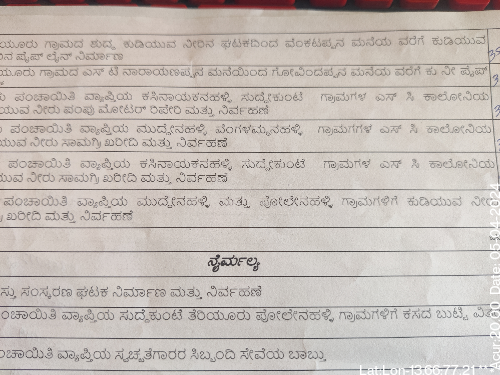 ಯೂರು ಗ್ರಾಮದ ಶುದ್ಧ ಕುಡಿಯುವ ನೀರಿನ ಘಟಕದಿಂದ ವೆಂಕಟಪ್ಪನ ಮನೆಯ ವರೆಗೆ ಕುಡಿಯುವ
ರಿನ ಪೈಪ್ ಲೈನ್ ನಿರ್ಮಾಣ
ಯೂರು ಗ್ರಾಮದ ಎಸ್ ಟಿ ನಾರಾಯಣಪ್ಪನ ಮನೆಯಿಂದ ಗೋವಿಂದಪ್ಪನ ಮನೆಯ ವರೆಗೆ ಕು ನೀ ಪೈಪ್
ಪಂಚಾಯಿತಿ ವ್ಯಾಪ್ತಿಯ ಕಸಿನಾಯಕನಹಳ್ಳಿ ಸುದ್ದೇಕುಂಟೆ ಗ್ರಾಮಗಳ ಎಸ್ ಸಿ ಕಾಲೋನಿಯ
ಯುವ ನೀರು ಪಂಪು ಮೋಟರ್ ರಿಪೇರಿ ಮತ್ತು ನಿರ್ವಹಣೆ
ಪಂಚಾಯಿತಿ ವ್ಯಾಪ್ತಿಯ ಮುದ್ದೇನಹಳ್ಳಿ ವೆಂಗಳಮ್ಮನಹಳ್ಳಿ ಗ್ರಾಮಗಳ ಎಸ್ ಸಿ ಕಾಲೋನಿಯ
ಯುವ ನೀರು ಸಾಮಗ್ರಿ ಖರೀದಿ ಮತ್ತು ನಿರ್ವಹಣೆ
ಪಂಚಾಯಿತಿ ವ್ಯಾಪ್ತಿಯ ಕಸಿನಾಯಕನಹಳ್ಳಿ ಸುದ್ದೇಕುಂಟೆ ಗ್ರಾಮಗಳ ಎಸ್ ಸಿ ಕಾಲೋನಿಯ
ಯುವ ನೀರು ಸಾಮಗ್ರಿ ಖರೀದಿ ಮತ್ತು ನಿರ್ವಹಣೆ
ಪಂಚಾಯಿತಿ ವ್ಯಾಪ್ತಿಯ ಮುದ್ದೇನಹಳ್ಳಿ ಮತ್ತು ಪೋಲೇನಹಳ್ಳಿ ಗ್ರಾಮಗಳಿಗೆ ಕುಡಿಯುವ ನೀರು
ಖರೀದಿ ಮತ್ತು ನಿರ್ವಹಣೆ
ನೈರ್ಮಲ್ಯ
ಸ್ತು ಸಂಸ್ಕರಣ ಘಟಕ ನಿರ್ಮಾಣ ಮತ್ತು ನಿರ್ವಹಣೆ
ಪಂಚಾಯಿತಿ ವ್ಯಾಪ್ತಿಯ ಸುದ್ದೆಕುಂಟೆ ತೆರಿಯೂರು ಪೋಲೇನಹಳ್ಳಿ ಗ್ರಾಮಗಳಿಗೆ ಕಸದ ಬುಟ್ಟಿ
ಪಂಚಾಯಿತಿ ವ್ಯಾಪ್ತಿಯ ಸ್ವಚ್ಛತೆಗಾರರ ಸಿಬ್ಬಂದಿ ಸೇವೆಯ ಬಾಬ್ತು